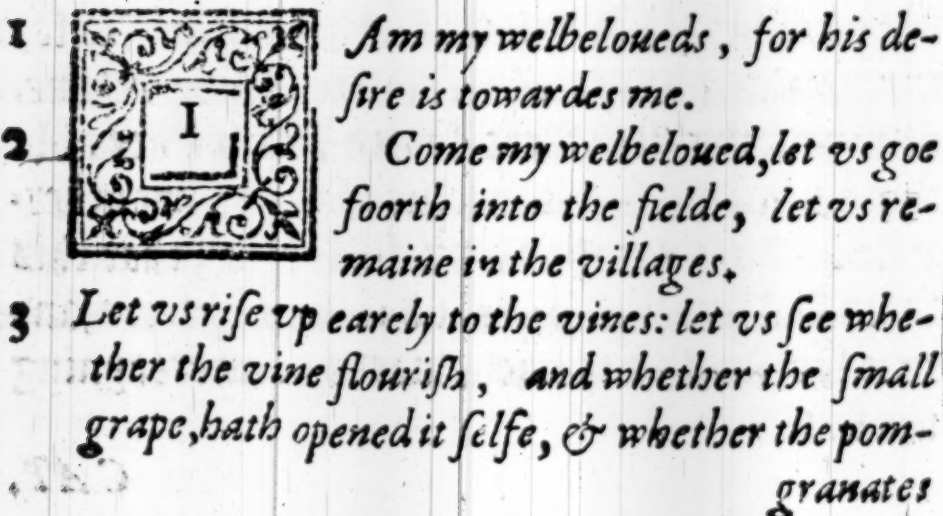 1 I Am my welbeloueds, for his de-
ſire is towardes me.
2 Come my welbeloued, let vs goe
foorth into the fielde, let vs re-
maine in the villages.
3 Let vs riſe vp earely to the vines: let vs ſee whe-
ther the vine flouriſh, and whether the ſmall
grape, hath opened it ſelfe, & whether the pom-
granates